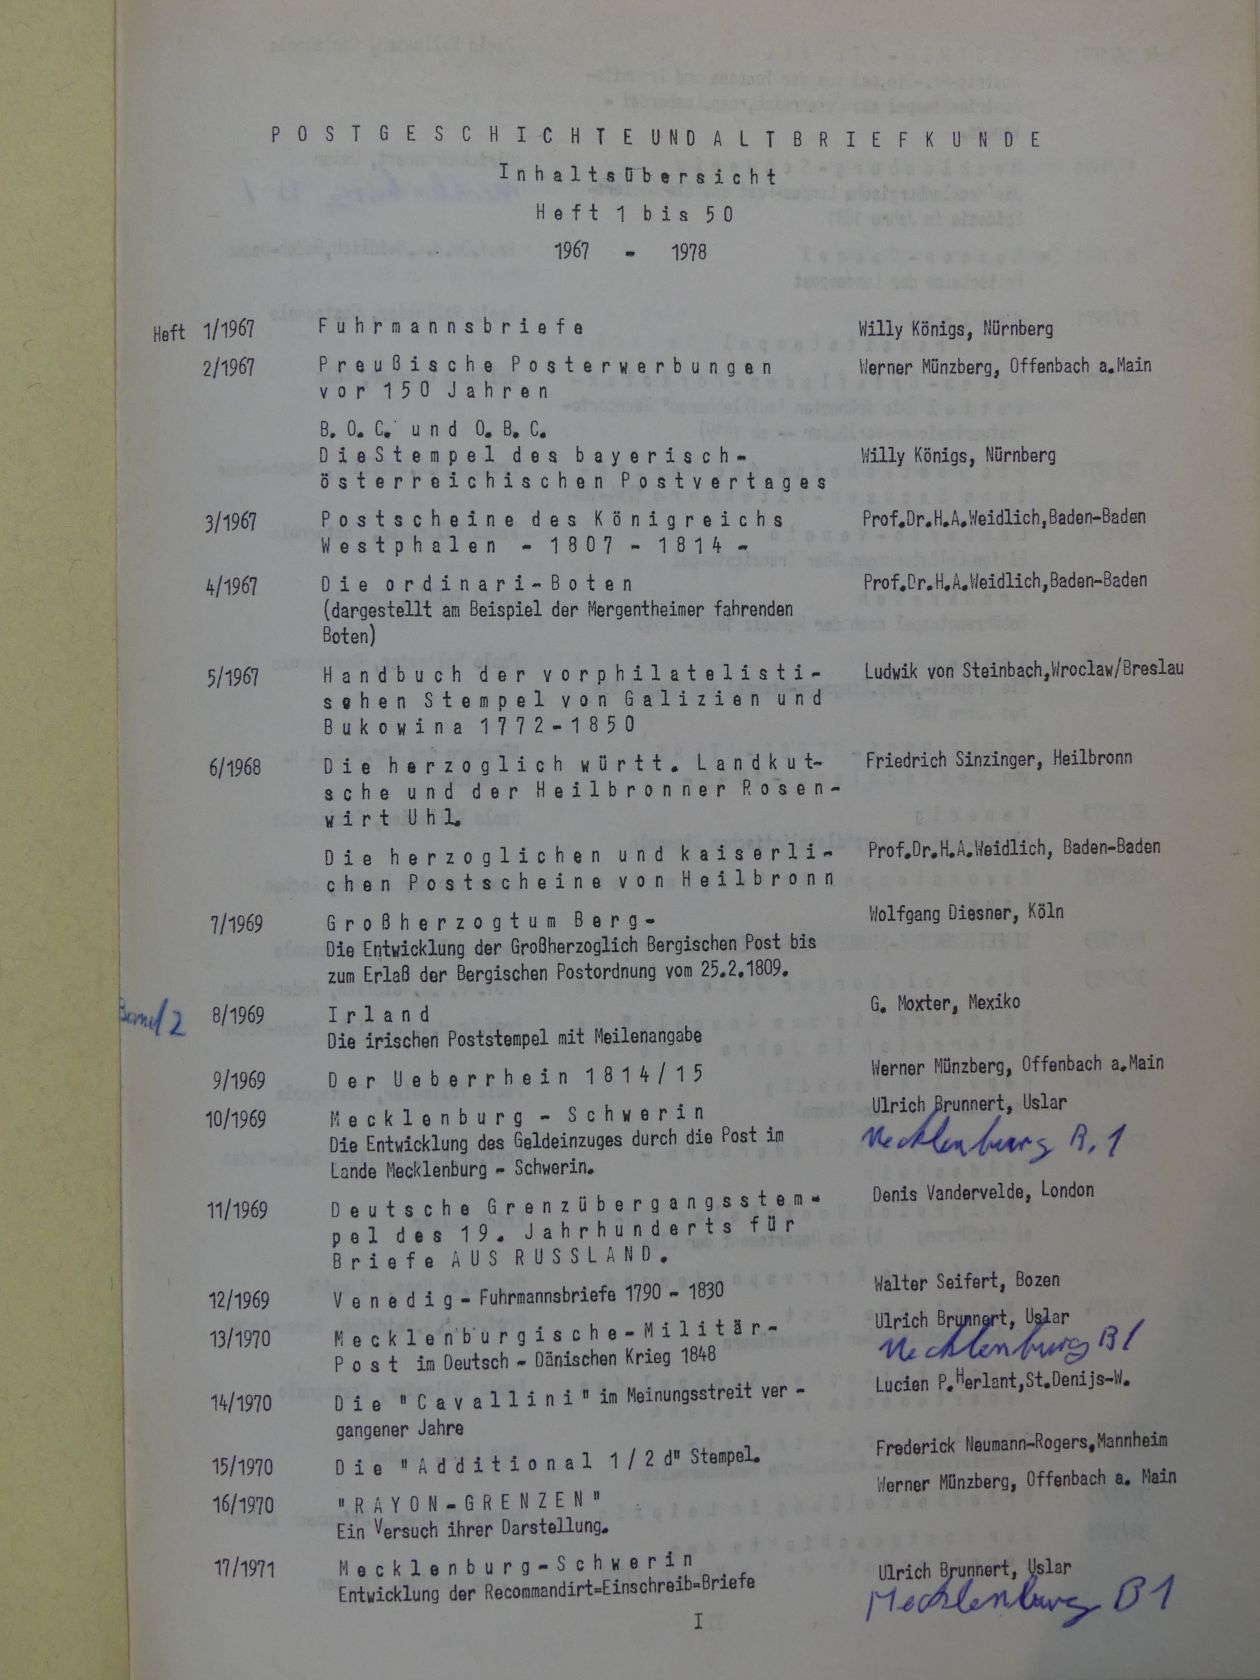 POSTGESCHICHTE UND ALTBRIEFKUNDE
Inhaltsübersicht
Heft 1 bis 50
1967 - 1978
Heft 1/1967 Fuhrmannsbriefe Willy Königs, Nürnberg
2/1967 Preußische Posterwerbungen Werner Münzberg, Offenbach a.Main
vor 150 Jahren
B.O.C. und O.B.C.
DieStempel des bayerisch- Willy Königs, Nürnberg
österreichischen Postvertages
3/1967 Postscheine des Königreichs Prof.Dr.H.A.Weidlich,Baden-Baden
Westphalen - 1807 - 1814 -
4/1967 Die ordinari-Boten Prof.Dr.H.A.Weidlich,Baden-Baden
(dargestellt am Beispiel der Mergentheimer fahrenden
Boten)
5/1967 Handbuch der vorphilatelisti- Ludwik von Steinbach,Wroclaw/Breslau
schen Stempel von Galizien und
Bukowina 1772-1850
6/1968 Die herzoglich württ. Landkut- Friedrich Sinzinger, Heilbronn
sche und der Heilbronner Rosen-
wirt Uhl.
Die herzoglichen und kaiserli- Prof.Dr.H.A.Weidlich, Baden-Baden
chen Postscheine von Heilbronn
7/1969 Großherzogtum Berg- Wolfgang Diesner, Köln
Die Entwicklung der Großherzoglich Bergischen Post bis
zum Erlaß der Bergischen Postordnung vom 25.2.1809.
Band 2 8/1969 Irland G. Moxter, Mexiko
Die irischen Poststempel mit Meilenangabe
9/1969 Der Ueberrhein 1814/15 Werner Münzberg, Offenbach a.Main
10/1969 Mecklenburg - Schwerin Ulrich Brunnert, Uslar
Die Entwicklung des Geldeinzuges durch die Post im Mecklenburg B.1
Lande Mecklenburg - Schwerin.
11/1969 Deutsche Grenzübergangsstem- Denis Vandervelde, London
pel des 19. Jahrhunderts für
Briefe AUS RUSSLAND.
12/1969 Venedig - Fuhrmannsbriefe 1790 - 1830 Walter Seifert, Bozen
13/1970 Mecklenburgische-Militär- Ulrich Brunnert, Uslar
Post im Deutsch - Dänischen Krieg 1848 Mecklenburg B1
14/1970 Die "Cavallini" im Meinungsstreit ver - Lucien P.Herlant,St.Denijs-W.
gangener Jahre
15/1970 Die "Additional 1/2 d" Stempel. Frederick Neumann-Rogers,Mannheim
16/1970 "RAYON-GRENZEN" Werner Münzberg, Offenbach a. Main
Ein Versuch ihrer Darstellung.
17/1971 Mecklenburg-Schwerin Ulrich Brunnert, Uslar
Entwicklung der Recommandirt=Einschreib=Briefe Mecklenburg B1
I